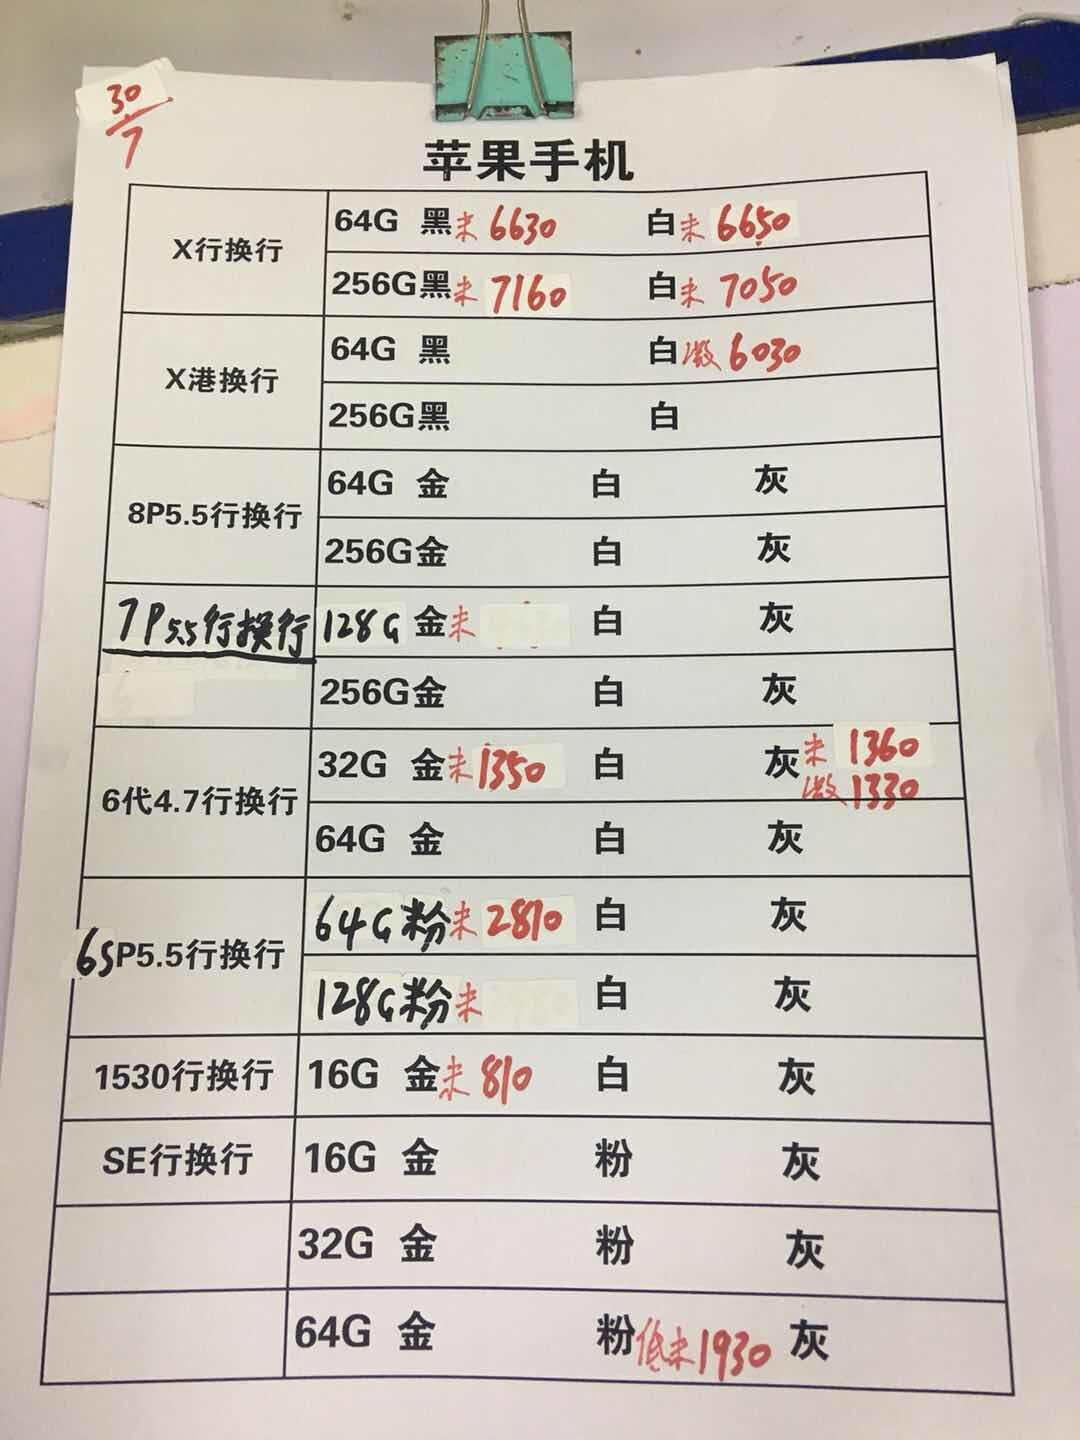 30/7
苹果手机
X行换行 64G 黑未 6630 白未 6650
256G黑未 7160 白未 7050
X港换行 64G 黑 白激 6030
256G黑 白
8P5.5行换行 64G 金 白 灰
256G金 白 灰
7P5.5行换行 128G 金未 白 灰
256G金 白 灰
6代4.7行换行 32G 金未1350 白 灰未 1360
激1330
64G 金 白 灰
6SP5.5行换行 64G粉未2810 白 灰
128G粉未 白 灰
1530行换行 16G 金未810 白 灰
SE行换行 16G 金 粉 灰
32G 金 粉 灰
64G 金 粉低未1930 灰